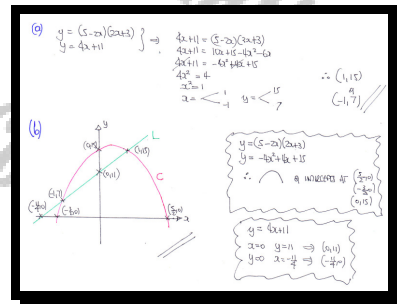 (a) y = (5-2x)(2x+3)
y = 4x+11
} ⇒ 4x+11 = (5-2x)(2x+3)
4x+11 = 10x+15-4x²-6x
4x+11 = -4x²+4x+15
4x² = 4
x² = 1
x = < 1 -1 y = < 15 7
∴ (1,15)
(-1,7)
(b)
y
L
(0,15)
(1,15)
(0,11)
C
(-1,7)
(-11/4,0) (-3/2,0) (5/2,0) x
y = (5-2x)(2x+3)
y = -4x²+4x+15
∴ INTERCEPTS AT (5/2,0)
(-3/2,0)
(0,15)
y = 4x+11
x=0 y=11 ⇒ (0,11)
y=0 x=-11/4 ⇒ (-11/4,0)